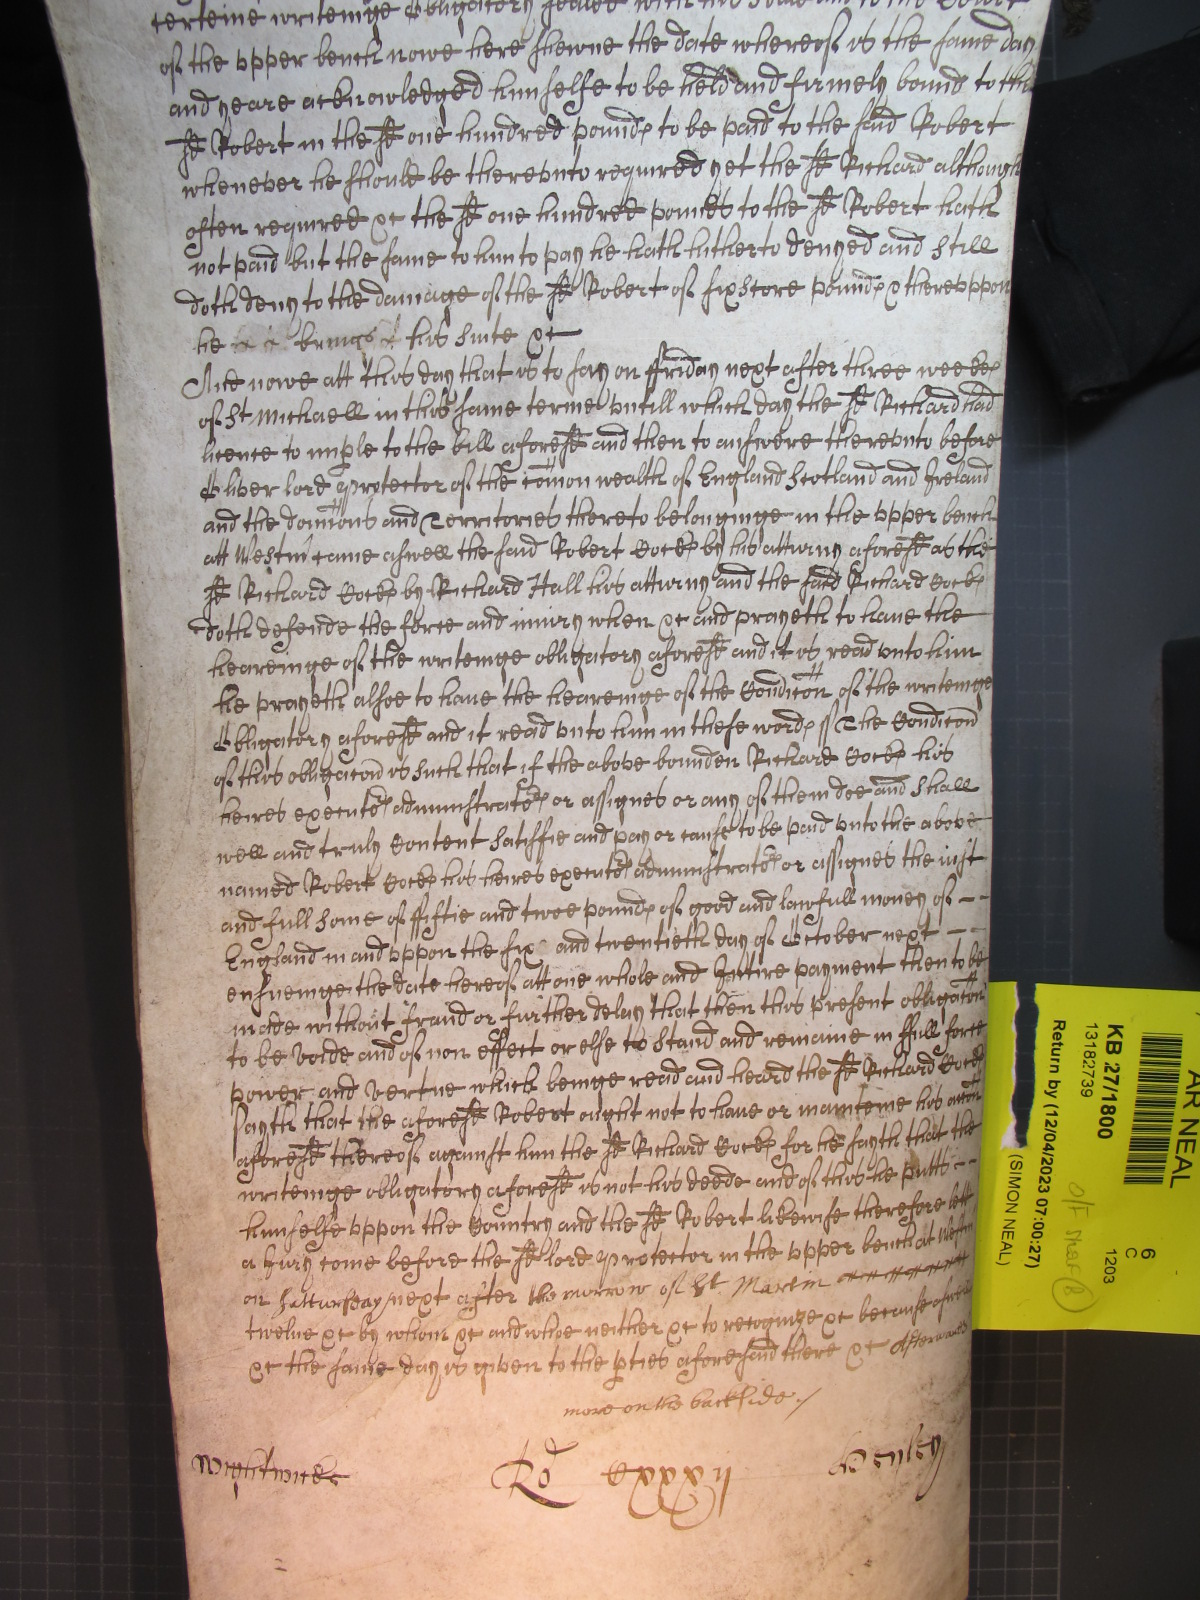 certeine writeinge Obligatory sealed with his seale and to the Court
of the upper bench nowe here shewne the date whereof is the same day
and yeare acknowledged himselfe to be held and firmely bound to the
sd Robert in the sd one hundred pounds to be paid to the said Robert
whenever he should be thereunto required yet the sd Richard although
often required &c the sd one hundred pounds to the sd Robert hath
not paid but the same to him to pay he hath hitherto denyed and still
doth deny to the damage of the sd Robert of sixscore pounds & thereuppon
he brings his suite &c
And nowe att this day that is to say on ffriday next after three weekes
of St Michaell in this same terme untill which day the sd Richard had
licence to imple to the bill aforesd and then to answere thereunto before
Oliver lord Protector of the comon wealth of England Scotland and Ireland
and the dominions and Territories thereto belonginge in the upper bench
att Westm came aswell the said Robert Cocks by his atturny aforesd as the
sd Richard Cocks by Richard Hall his atturny and the said Richard Cocks
doth defende the force and iniury when &c and prayeth to have the
heareinge of the writeinge obligatory aforesd and it is read unto him
he prayeth alsoe to have the heareinge of the Condicon of the writeinge
Obligatory aforesd and it read unto him in these words ss The Condicon
of this obligacon is such that if the above bounden Richard Cocks his
heires executors administrators or assignes or any of them doe and shall
well and truly Content satisfie and pay or cause to be paid unto the above
named Robert Cocks his heires executors administrators or assignes the iust
and full some of ffiftie and twoe pounds of good and lawfull money of
England in and uppon the six and twentieth day of October next
ensueinge the date hereof att one whole and Intire payment then to be
made without fraud or further delay that then this present obligacon
to be voide and of non effect or else to stand and remaine in ffull force
power and vertue which beinge read and heard the sd Richard Cocks
sayth that the aforesd Robert ought not to have or mainteine his accon
aforesd thereof against him the sd Richard Cocks for he sayth that the
writeinge obligatory aforesd is not his deede and of this he putts
himselfe uppon the Country and the sd Robert likewise therefore lett
a Jury come before the sd lord Protector in the upper bench at Westm
on Satturday next after the morrow of St Martin
twelve &c by whom &c and whoe neither &c to recognize &c because aswell
&c the same day is given to the pties aforesaid there &c Afterwards
more on the backside
Wightwicke Ro Cxxxij Henley
AR NEAL
KB 27/1800
13182739
Return by (12/04/2023 07:00:27)
(SIMON NEAL)
6
C
1203